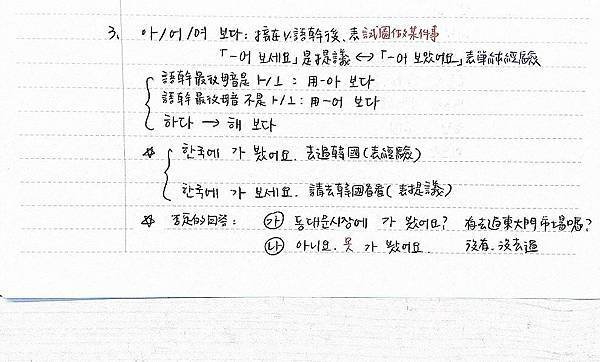 3. 아/어/여 보다: 接在V.語幹後. 表試圖做某件事
「-어 보세요」是提議 ↔ 「-어 보았어요」表單純經驗
語幹最後母音是ㅏ/ㅗ: 用-아 보다
語幹最後母音不是ㅏ/ㅗ: 用-어 보다
하다 → 해 보다
☆ 한국에 가 봤어요. 去過韓國(表經驗)
한국에 가 보세요. 請去韓國看看(表提議)
☆ 否定的回答: ㉮ 동대문시장에 가 봤어요? 有去過東大門市場嗎?
㉯ 아니요. 못 가 봤어요. 沒有. 沒去過